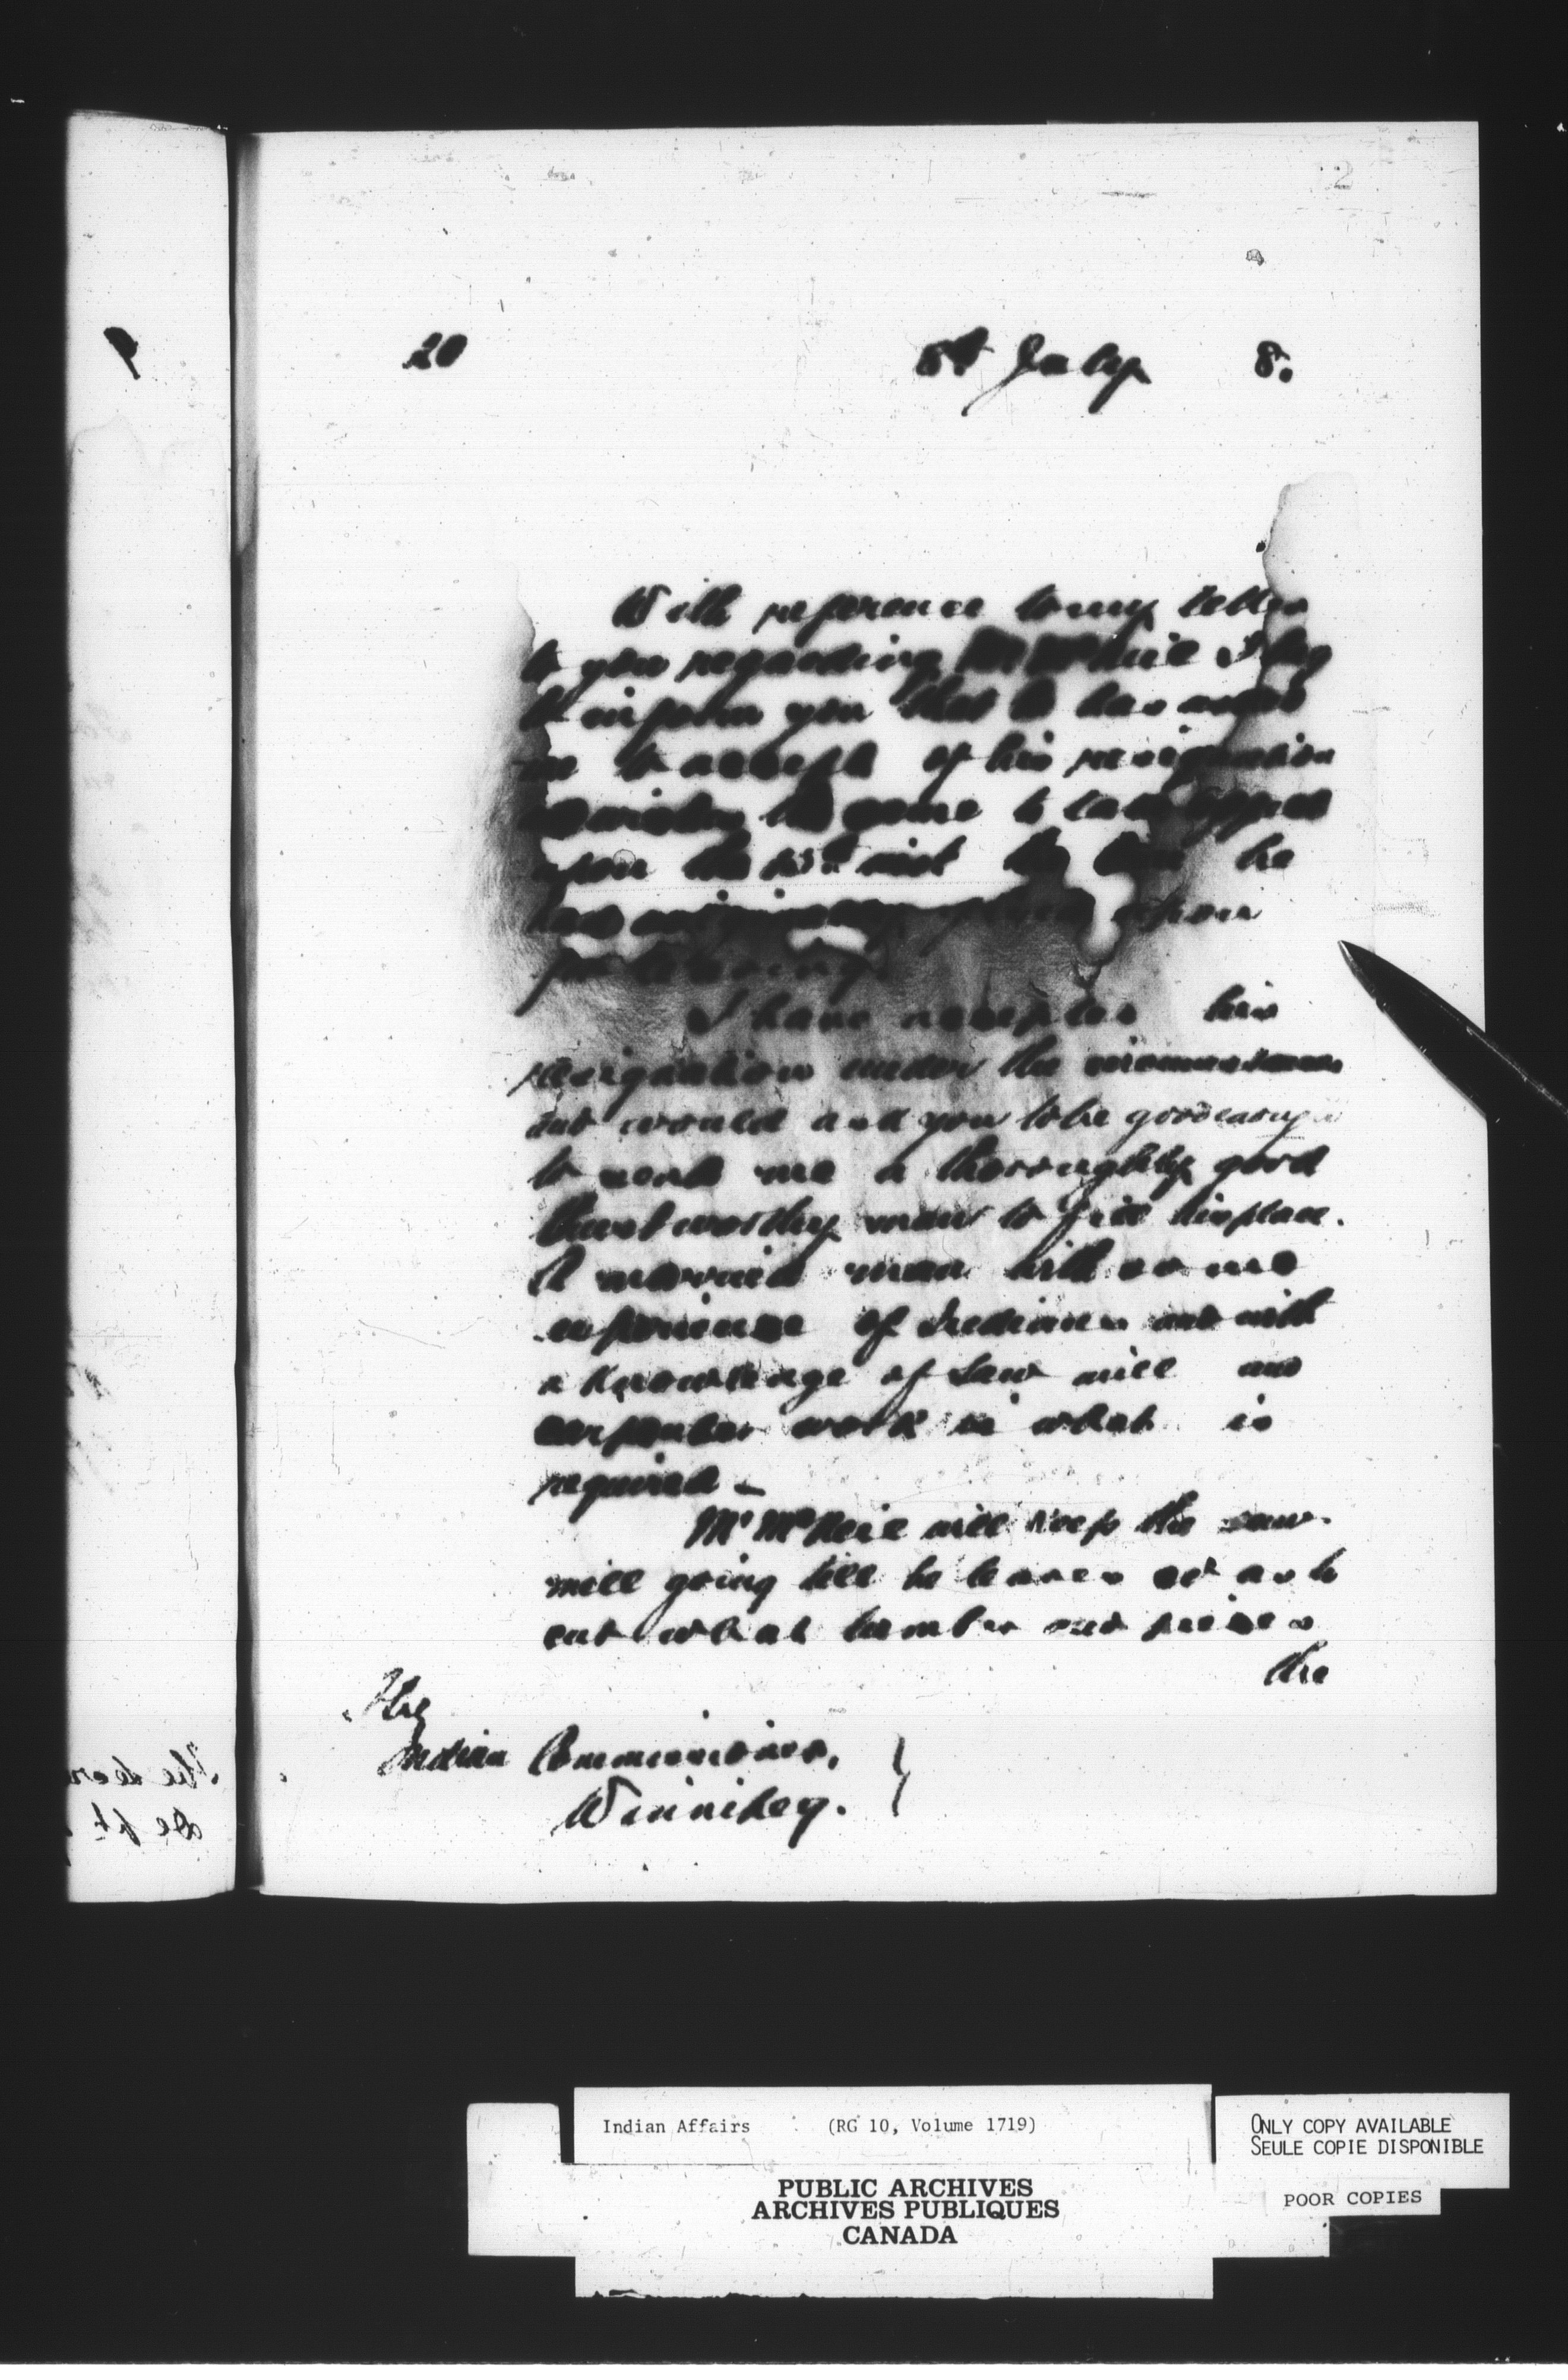 2
20 8th July 8.
With reference to my letter
to you regarding Mr McNeil I beg
to inform you that he has asked
me to accept of his resignation
as he gone to
upon the inst he
has given
for leaving
I have accepted his
resignation under the circumstances
but would ask you to be good enough
to send me a thoroughly good
trustworthy man to fill his place.
A married man with some
experience of Indians and with
a knowledge of Saw mill and
carpenter work is what is
required -
Mr McNeil will keep the saw
mill going till he leaves so as to
cut what lumber
the
The
Indian Commissioner,
Winnipeg.
Indian Affairs (RG 10, Volume 1719)
PUBLIC ARCHIVES
ARCHIVES PUBLIQUES
CANADA
ONLY COPY AVAILABLE
SEULE COPIE DISPONIBLE
POOR COPIES